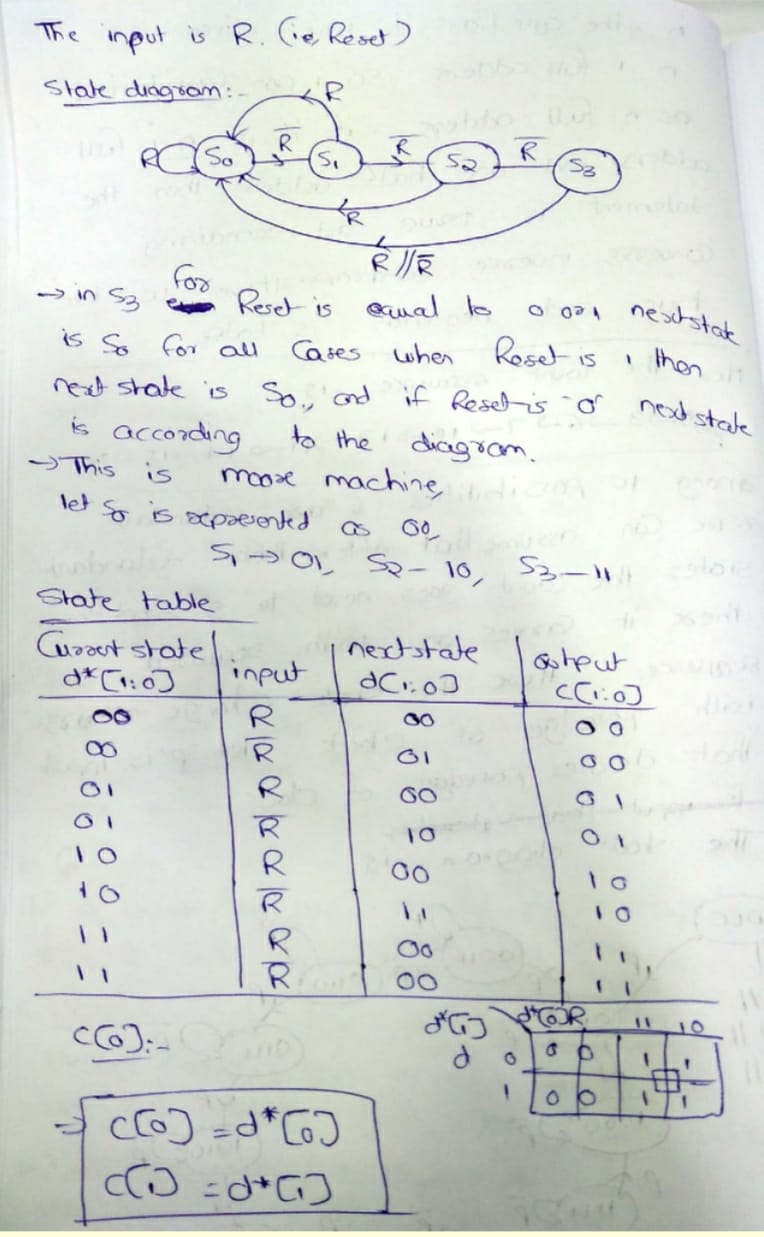 The input is R. (i.e, Reset)
State diagram:-
R
R S0 R̅ S1 R̅ S2 R̅ S3
R
R // R̅
→ in S3 For Reset is equal to 0 or 1 next state
is S0 for all Cases when Reset is 1 then
next state is S0, and if Reset is '0' next state
is according to the diagram.
→ This is moore machine,
let S0 is represented as 00,
S1 → 01, S2 - 10, S3 - 11
State table
Current state d*[1:0] | input | next state d[1:0] | output c[1:0]
00 R 00 00
00 R̅ 01 00
01 R 00 01
01 R̅ 10 01
10 R 00 10
10 R̅ 11 10
11 R 00 11
11 R̅ 00 11
c[0]:-
d*[1] d*[0]R 11 10
d 0 0 0 1 1
1 0 0 1 1
⇒ c[0] = d*[0]
c[1] = d*[1]